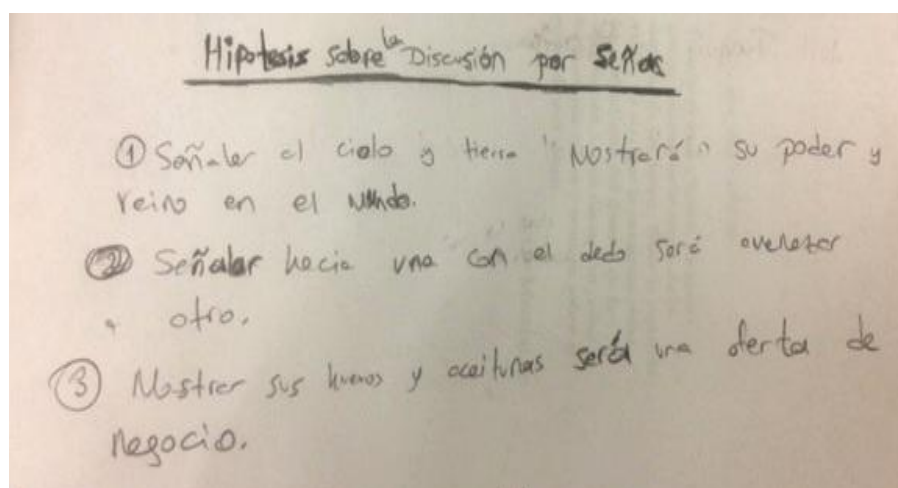 Hipotesis sobre la Discusión por señas
① Señaler el cielo y tierra "Mostrará" su poder y
reino en el mundo.
② Señalar hacia una con el dedo será
a otro.
③ Mostrer sus huevos y aceitunas será una oferta de
negocio.